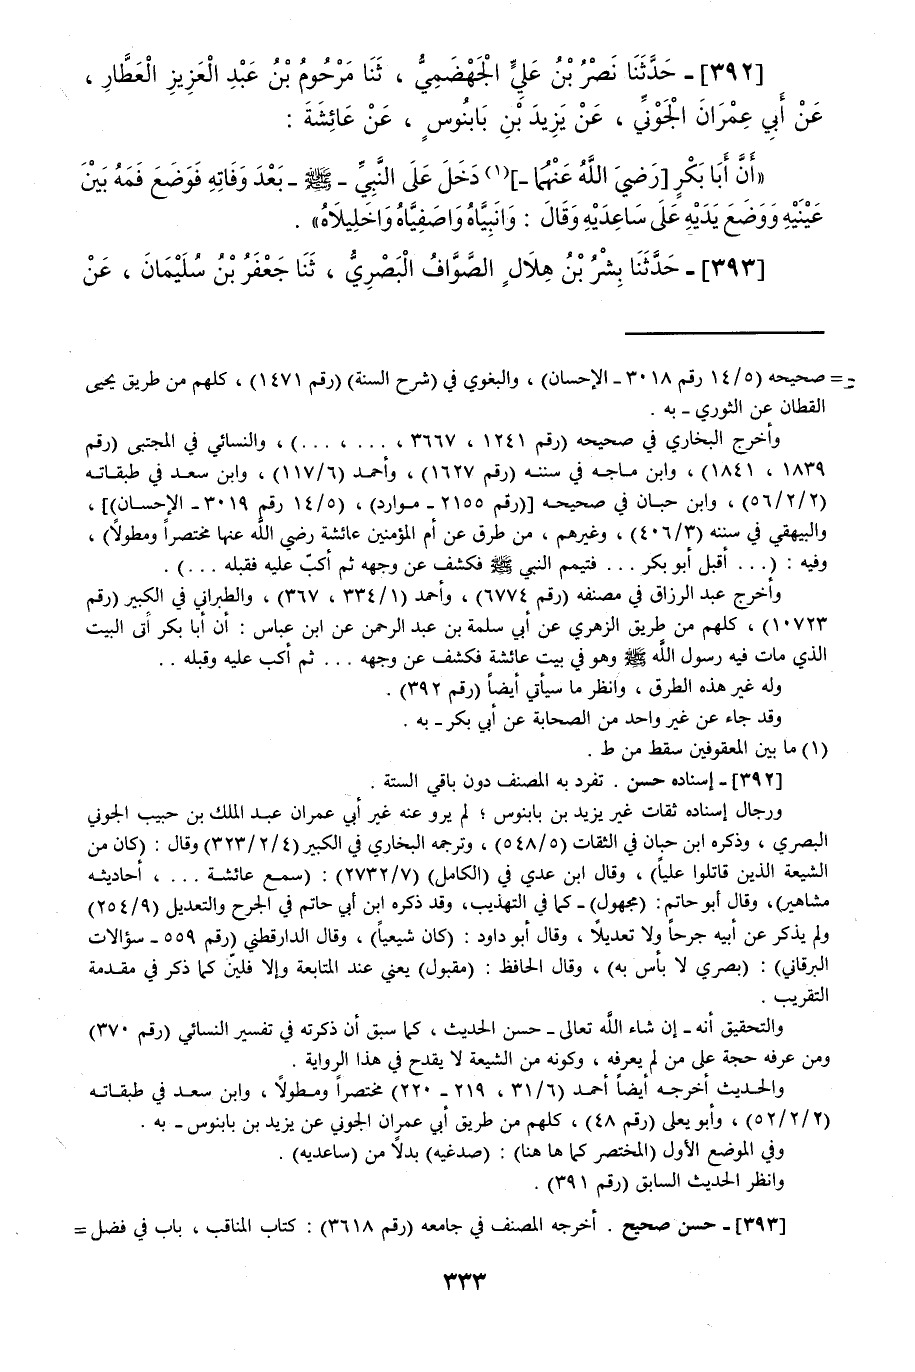 [٣٩٢] ـ حَدَّثَنَا نَصْرُ بْنُ عَلِيٍّ الْجَهْضَمِيُّ ، ثَنَا مَرْحُومُ بْنُ عَبْدِ الْعَزِيزِ الْعَطَّارِ ،
عَنْ أَبِي عِمْرَانَ الْجَوْنِيِّ ، عَنْ يَزِيدَ بْنِ بَابنُوسٍ ، عَنْ عَائِشَةَ :
«أَنَّ أَبَا بَكْرٍ [رَضِيَ اللَّهُ عَنْهُمَا ـ](١) دَخَلَ عَلَى النَّبِيِّ ـ ﷺ ـ بَعْدَ وَفَاتِهِ فَوَضَعَ فَمَهُ بَيْنَ
عَيْنَيْهِ وَوَضَعَ يَدَيْهِ عَلَى سَاعِدَيْهِ وَقَالَ : وَانَبِيَّاهُ وَاصَفِيَّاهُ وَاخَلِيلَاهُ» .
[٣٩٣] ـ حَدَّثَنَا بِشْرُ بْنُ هِلَالٍ الصَّوَّافُ الْبَصْرِيُّ ، ثَنَا جَعْفَرُ بْنُ سُلَيْمَانَ ، عَنْ
= صحيحه (١٤/٥ رقم ٣٠١٨ ـ الإحسان) ، والبغوي في (شرح السنة) (رقم ١٤٧١) ، كلهم من طريق يحيى
القطان عن الثوري ـ به .
وأخرج البخاري في صحيحه (رقم ١٢٤١ ، ٣٦٦٧ ، ... ، ...) ، والنسائي في المجتبى (رقم
١٨٣٩ ، ١٨٤١) ، وابن ماجه في سننه (رقم ١٦٢٧) ، وأحمد (١١٧/٦) ، وابن سعد في طبقاته
(٥٦/٢/٢) ، وابن حبان في صحيحه [(رقم ٢١٥٥ ـ موارد) ، (١٤/٥ رقم ٣٠١٩ ـ الإحسان)] ،
والبيهقي في سننه (٤٠٦/٣) ، وغيرهم ، من طرق عن أم المؤمنين عائشة رضي الله عنها مختصراً ومطولاً) ،
وفيه : (... أقبل أبو بكر ... فتيمم النبي ﷺ فكشف عن وجهه ثم أكبّ عليه فقبله ...) .
وأخرج عبد الرزاق في مصنفه (رقم ٦٧٧٤) ، وأحمد (٣٣٤/١ ، ٣٦٧) ، والطبراني في الكبير (رقم
١٠٧٢٣) ، كلهم من طريق الزهري عن أبي سلمة بن عبد الرحمن عن ابن عباس : أن أبا بكر أتى البيت
الذي مات فيه رسول الله ﷺ وهو في بيت عائشة فكشف عن وجهه ... ثم أكب عليه وقبله ..
وله غير هذه الطرق ، وانظر ما سيأتي أيضاً (رقم ٣٩٢) .
وقد جاء عن غير واحد من الصحابة عن أبي بكر ـ به .
(١) ما بين المعقوفين سقط من ط .
[٣٩٢] ـ إسناده حسن . تفرد به المصنف دون باقي الستة .
ورجال إسناده ثقات غير يزيد بن بابنوس ؛ لم يرو عنه غير أبي عمران عبد الملك بن حبيب الجوني
البصري ، وذكره ابن حبان في الثقات (٥٤٨/٥) ، وترجمه البخاري في الكبير (٣٢٣/٢/٤) وقال : (كان من
الشيعة الذين قاتلوا علياً) ، وقال ابن عدي في (الكامل) (٢٧٣٢/٧) : (سمع عائشة ... ، أحاديثه
مشاهير)، وقال أبو حاتم : (مجهول) ـ كما في التهذيب، وقد ذكره ابن أبي حاتم في الجرح والتعديل (٢٥٤/٩)
ولم يذكر عن أبيه جرحاً ولا تعديلاً ، وقال أبو داود : (كان شيعياً) ، وقال الدارقطني (رقم ٥٥٩ ـ سؤالات
البرقاني) : (بصري لا بأس به) ، وقال الحافظ : (مقبول) يعني عند المتابعة وإلا فليّن كما ذكر في مقدمة
التقريب .
والتحقيق أنه ـ إن شاء الله تعالى ـ حسن الحديث ، كما سبق أن ذكرته في تفسير النسائي (رقم ٣٧٠)
ومن عرفه حجة على من لم يعرفه ، وكونه من الشيعة لا يقدح في هذا الرواية .
والحديث أخرجه أيضاً أحمد (٣١/٦ ، ٢١٩ ـ ٢٢٠) مختصراً ومطولاً ، وابن سعد في طبقاته
(٥٢/٢/٢) ، وأبو يعلى (رقم ٤٨) ، كلهم من طريق أبي عمران الجوني عن يزيد بن بابنوس ـ به .
وفي الموضع الأول (المختصر كما ها هنا) : (صدغيه) بدلاً من (ساعديه) .
وانظر الحديث السابق (رقم ٣٩١) .
[٣٩٣] ـ حسن صحيح . أخرجه المصنف في جامعه (رقم ٣٦١٨) : كتاب المناقب ، باب في فضل =
٣٣٣